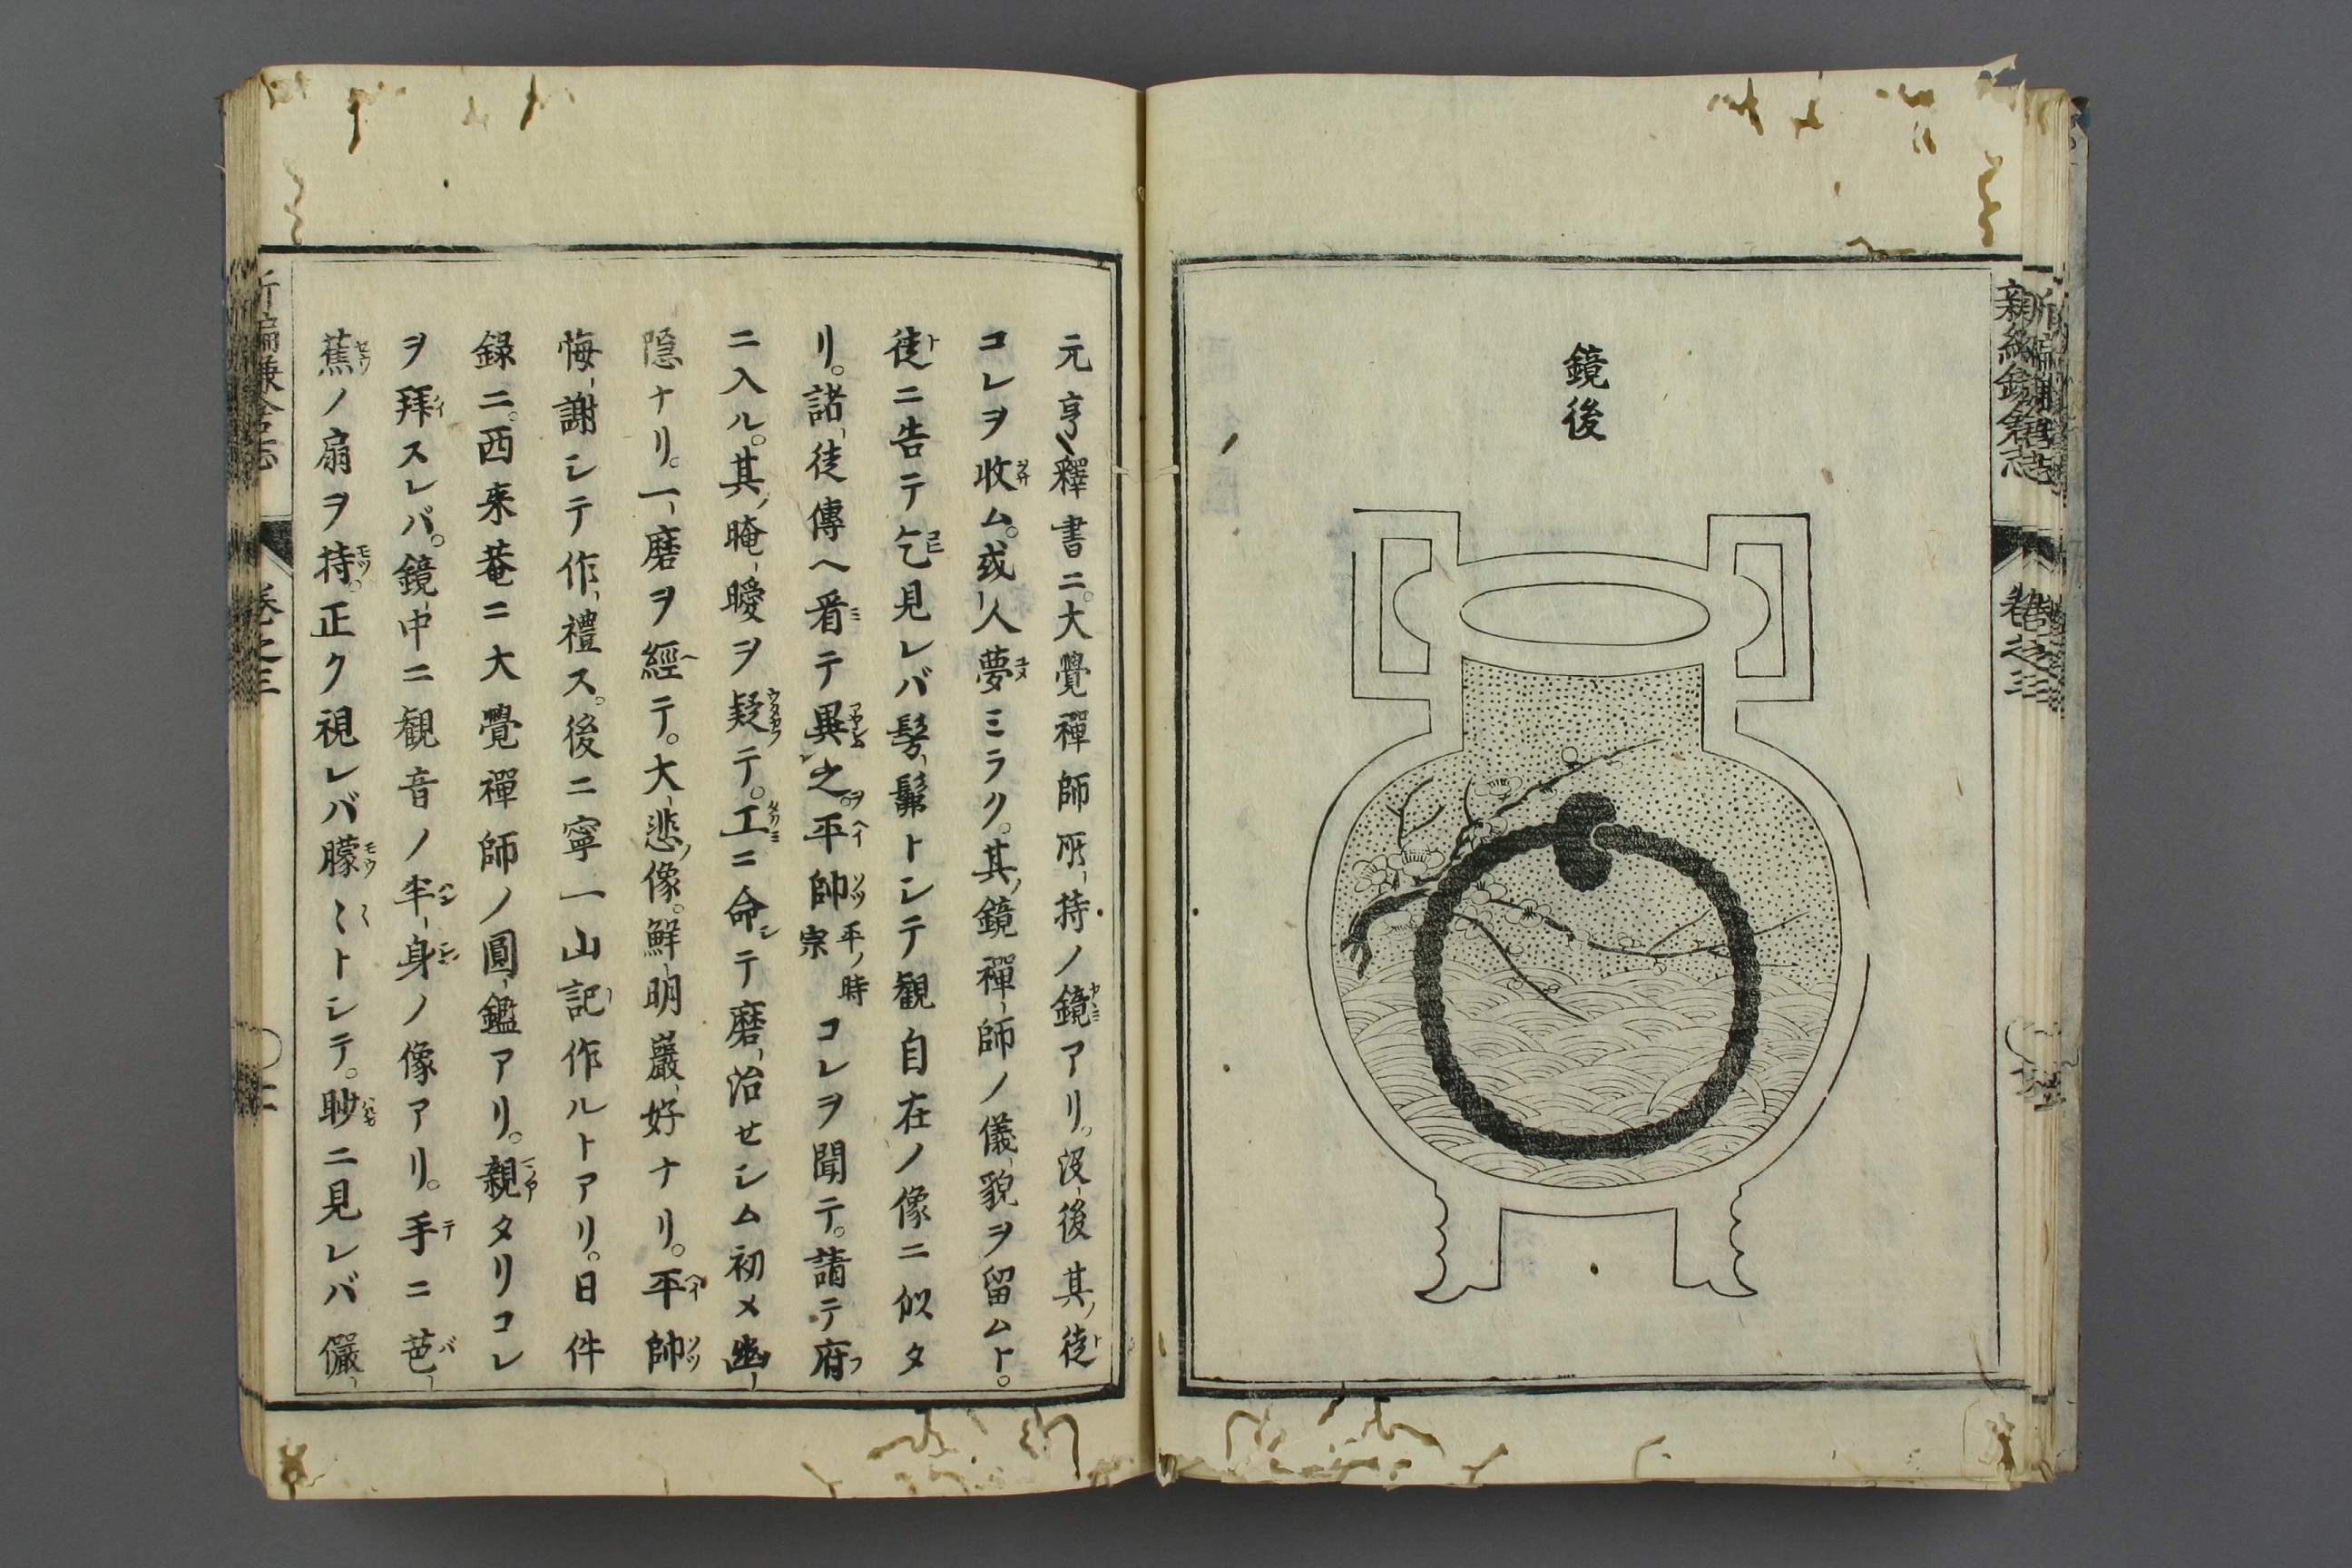 鏡後
元亨釋書ニ。大覺禪師所持ノ鏡アリ。沒後其ノ徒
コレヲ收ム。或人夢ミラク。其ノ鏡禪師ノ儀貌ヲ留ムト。
徒ニ告テ乞見レバ髣髴トシテ観自在ノ像ニ似タ
リ。諸徒傳ヘ看テ異之。平帥平ノ時宗コレヲ聞テ。請テ府
ニ入ル。其ノ晻曖ヲ疑テ。工ニ命シテ磨治セシム初メ幽
隠ナリ。一磨ヲ經テ。大悲ノ像。鮮明巖好ナリ。平帥
悔謝シテ作禮ス。後ニ寧一山記作ルトアリ。日件
録ニ。西来菴ニ大覺禪師ノ圓鑑アリ。親タリコレ
ヲ拜スレバ。鏡中ニ観音ノ半身ノ像アリ。手ニ芭
蕉ノ扇ヲ持。正ク視レバ朦〻トシテ。眇ニ見レバ儼
新編鎌倉志 卷之三